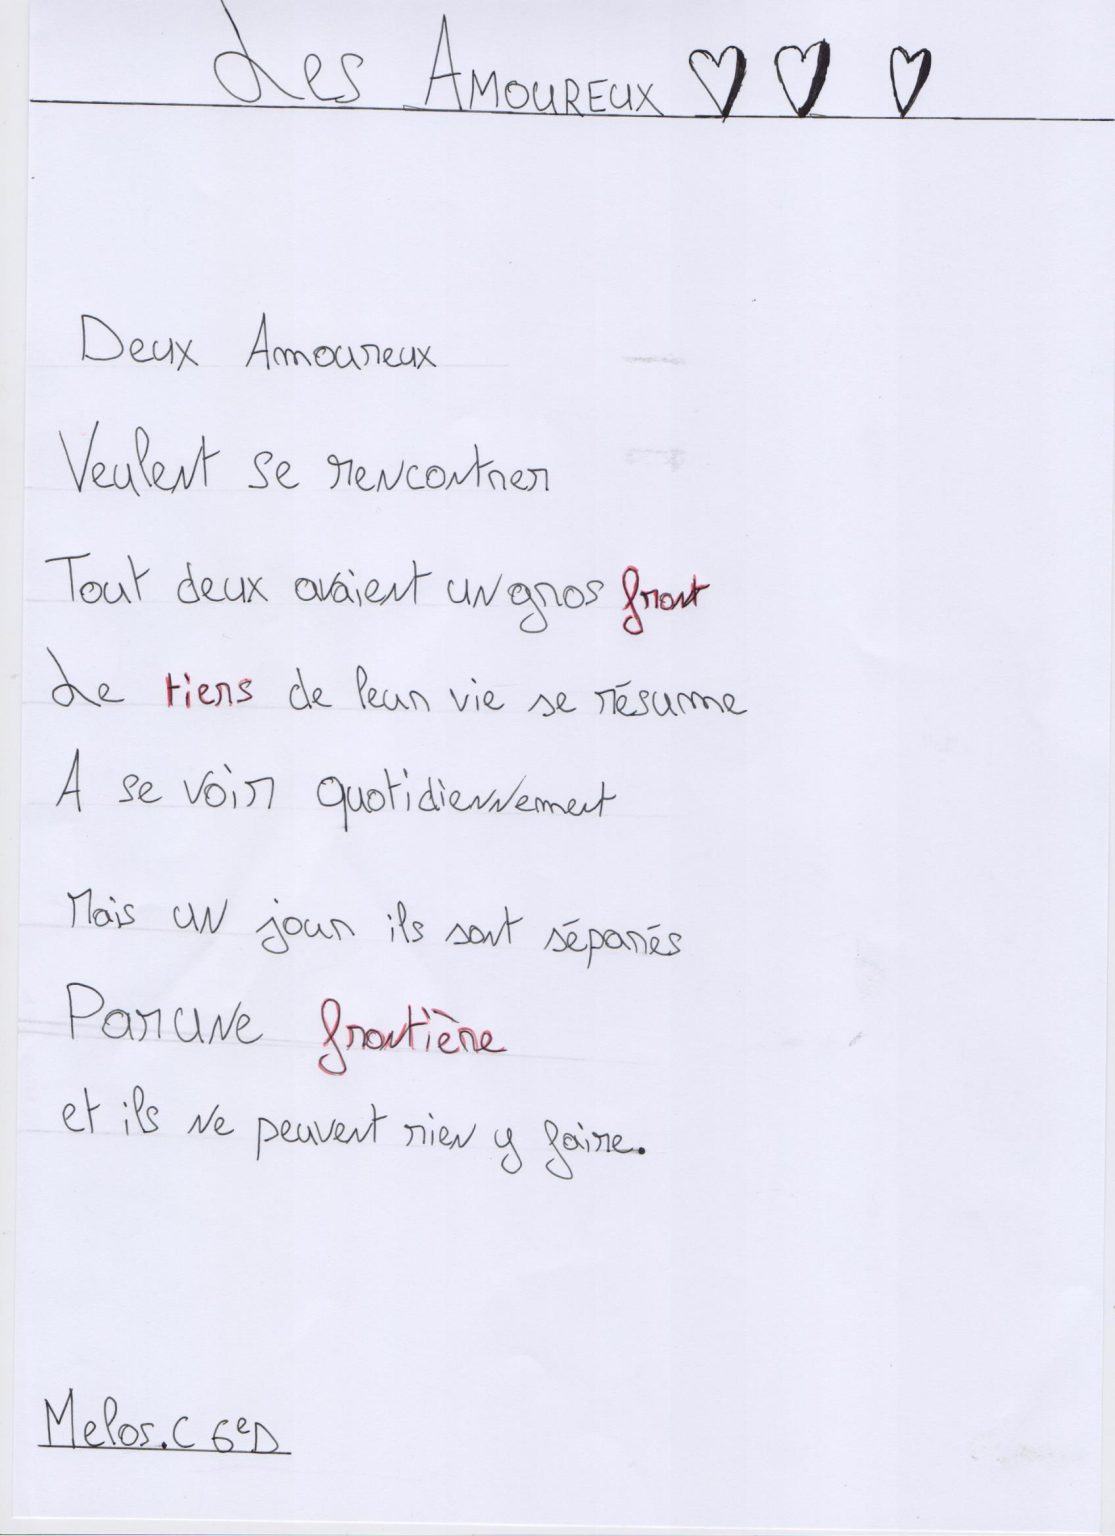 Les Amoureux
Deux Amoureux
Veulent se rencontrer
Tout deux avaient un gros front
Le tiers de leur vie se résume
A se voir quotidiennement
Mais un jour ils sont séparés
Par une frontière
et ils ne peuvent rien y faire.
Melos.C 6eD